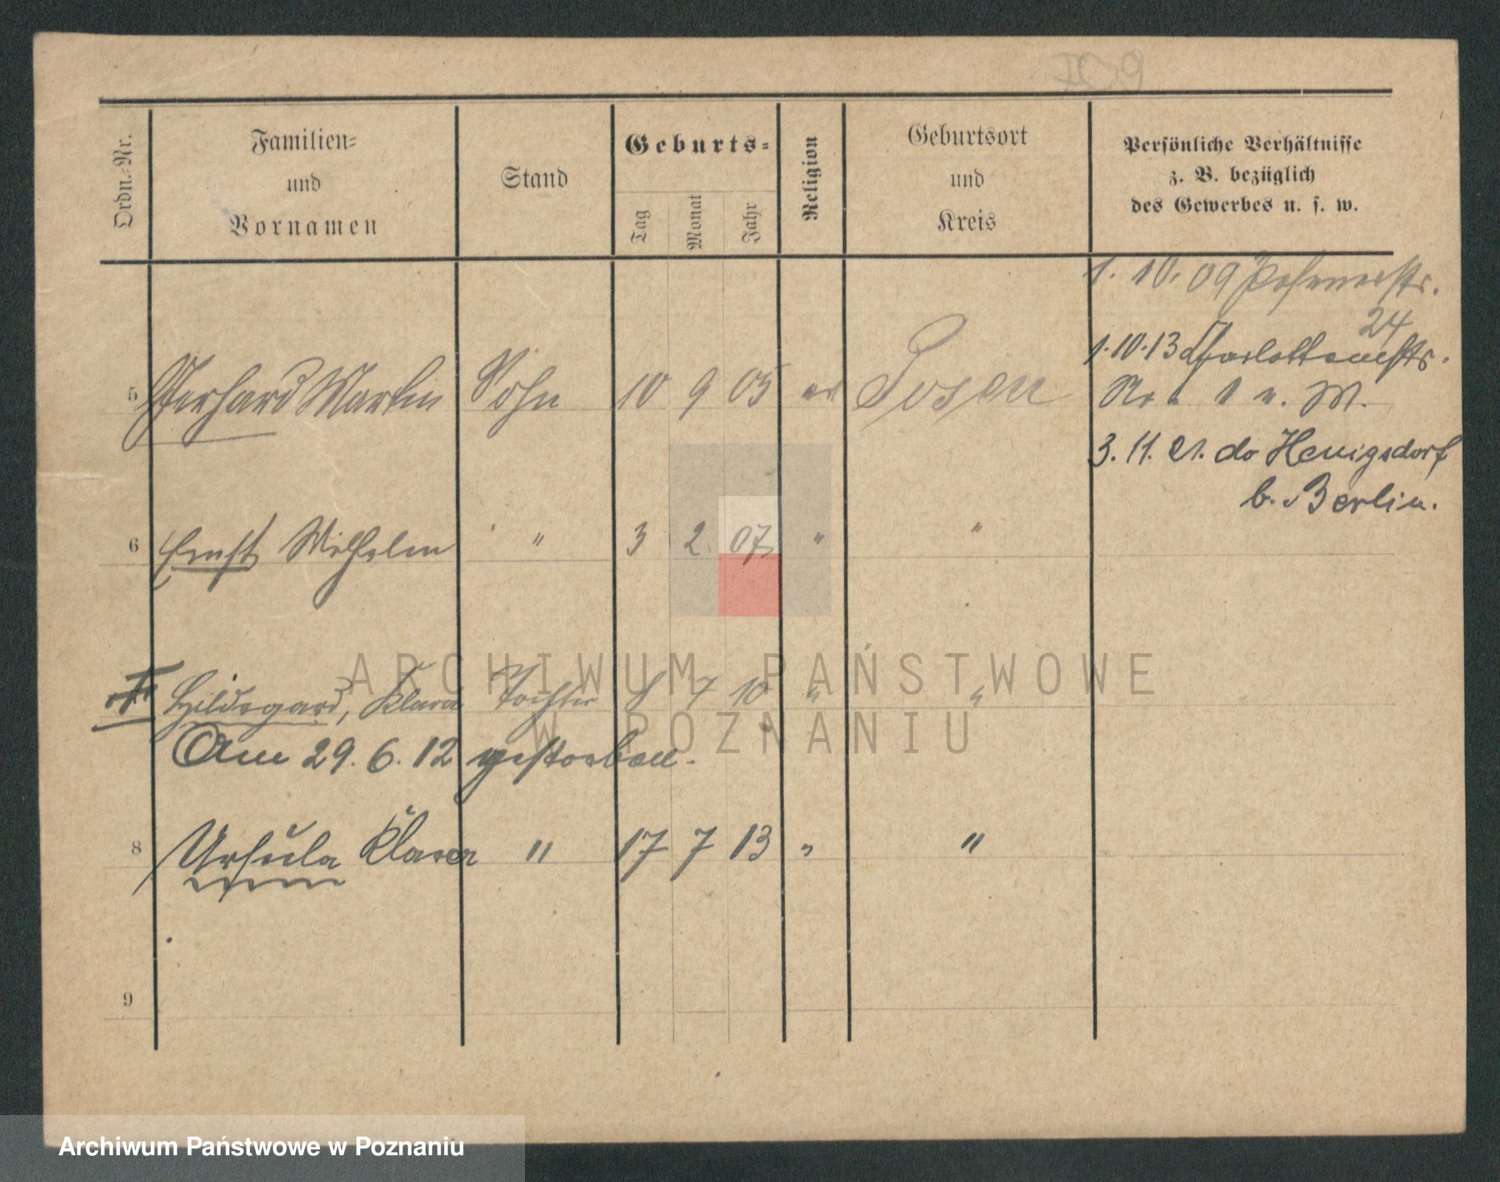 Ordn.-Nr.
Familien-
und
Vornamen
Stand
Geburts-
Tag
Monat
Jahr
Religion
Geburtsort
und
Kreis
Persönliche Verhältnisse
z. B. bezüglich
des Gewerbes u. s. w.
1. 10. 09
24
1.10.13 Charlottenstr.
5 Gerhard Martin Sohn 10 9 05 ev Posen
No 1 u. W.
3. 11. 21. do Henigsdorf
b. Berlin.
6 Ernst Wilhelm " 3 2 07 " "
Hildegard, Klara Tochter 8 7 10 " "
Am 29. 6. 12 gestorben.
8 Ursula Klara " 17 7 13 " "
9
ARCHIWUM PAŃSTWOWE
W POZNANIU
Archiwum Państwowe w Poznaniu